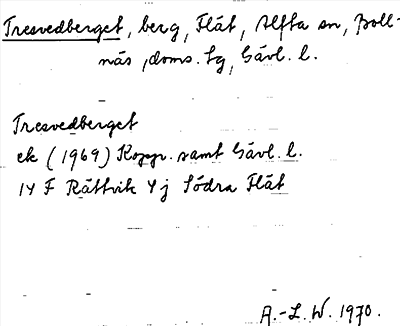 Tresvedberget, berg, Flät, Alfta sn, Boll-
näs, doms. sg, Gävl. l.
Tresvedberget
ek (1969) Kopp. samt Gävl. l.
14 F Rättvik 4 j Södra Flät
A.-L. W. 1970.